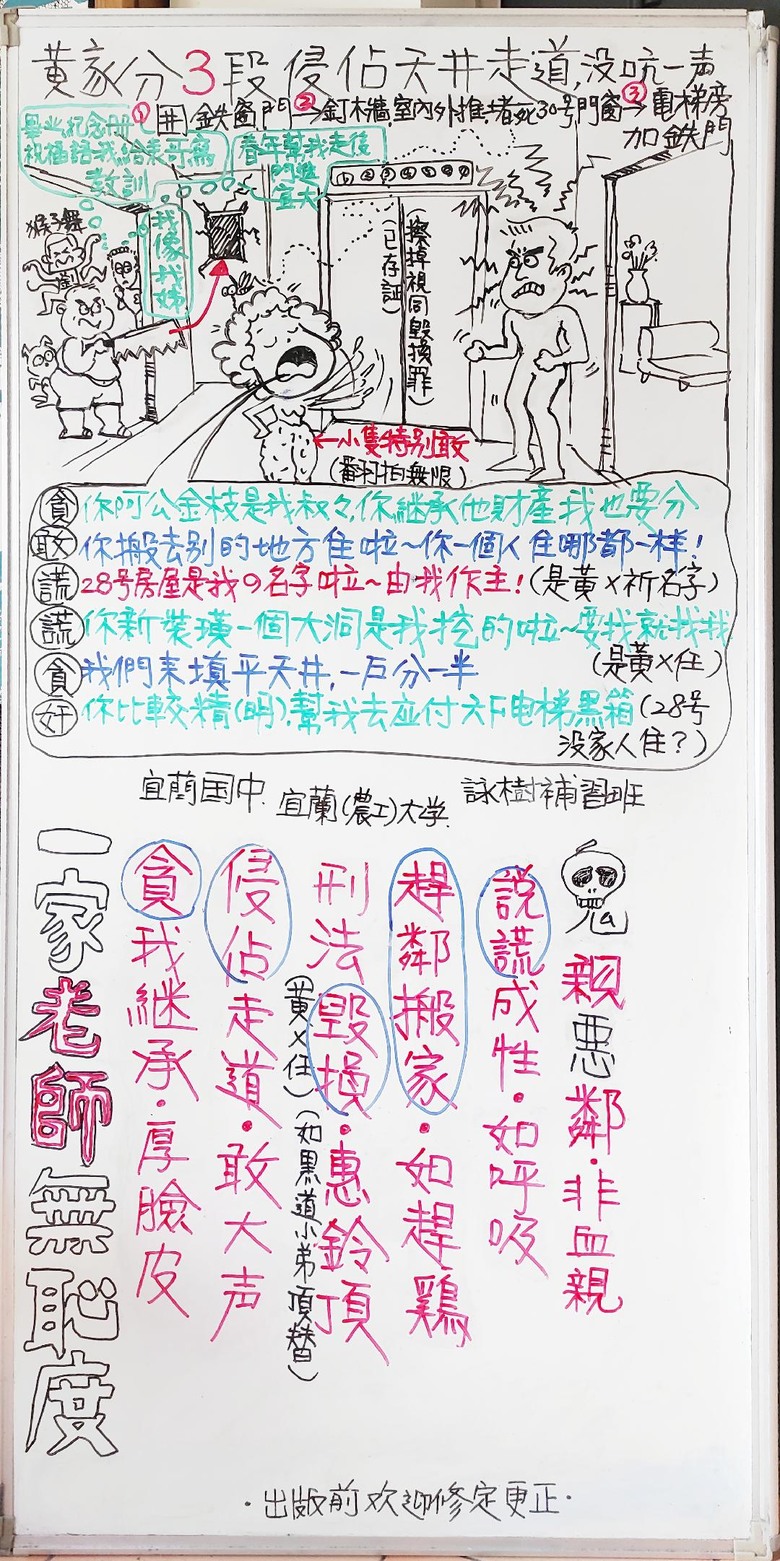 黃家分3段侵佔天井走道,没吭一声
①井鉄窗門②→釘木牆室內外推,堵死30号門窗③→電梯旁
加鉄門
畢业紀念册
祝福語我給表哥寫
教訓
春年幫我走後
門進
宜大
我像我姊
猴子舞
①②③④⑤⑥⑦
擦掉視同毀損罪)
(已存証)
←小隻特別敢
(番打拍無限)
貪 你阿公金枝是我叔々,你継承他財產我也要分
敢 你搬去別的地方住啦~你一個人住哪都一樣!
謊 28号房屋是我の名字啦~由我作主!(是黃×祈名字)
謊 你新裝璜一個大洞是我挖的啦~要找就找我
(是黃×住)
貪 我們来填平天井,一戶分一半
奸 你比較精(明),幫我去应付六F电梯黑箱(28号
没家人住?)
宜蘭国中.
宜蘭(農工)大学.
詠樹補習班
鬼親悪鄰·非血親
說謊成性·如呼吸
趕鄰搬家·如趕鶏
刑法毀損·惠鈴頂
(黃×住)(如黑道小弟頂替)
侵佔走道·敢大声
貪我継承·厚臉皮
一家老師無恥度
·出版前欢迎修定更正·